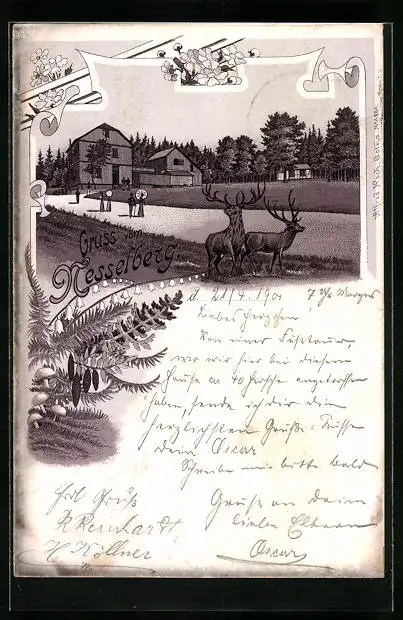 Gruss vom
Nesselberg.
d. 21/4. 1901 7 Uhr Morgens
Liebes Herzchen!
Von einer Fußtour
wo wir hier bei diesem
Hause ca 40 Hirsche angetroffen
haben, sende ich dir die
herzlichsten Grüße u. Küsse
dein Oscar
Schreibe mir bitte bald
Grüße an deine
lieben Eltern
Oscar
Hrzl. Gruß
R Reinhardt
H Köllner